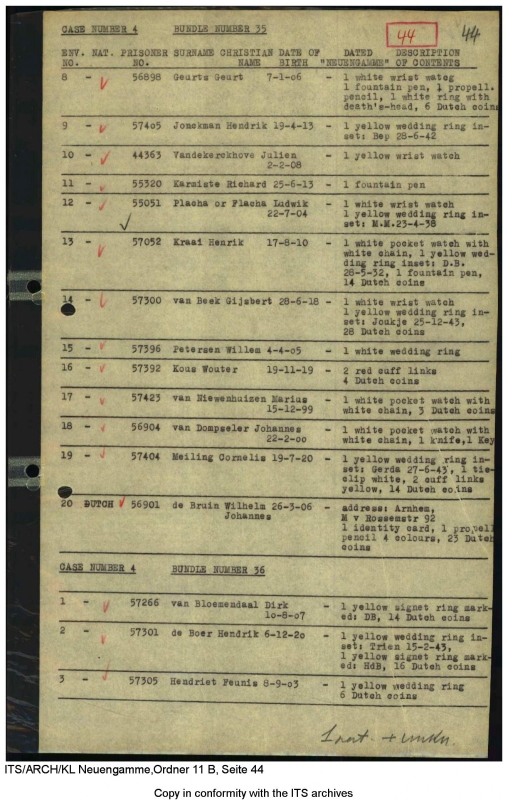 44
44
CASE NUMBER 4 BUNDLE NUMBER 35
ENV. NAT. PRISONER SURNAME CHRISTIAN DATE OF DATED DESCRIPTION
NO. NO. NAME BIRTH "NEUENGAMME" OF CONTENTS
8 - 56898 Geurts Geurt 7-1-06 - 1 white wrist watcg
1 fountain pen, 1 propell.
pencil, 1 white ring with
death's-head, 6 Dutch coins
9 - 57405 Jonckman Hendrik 19-4-13 - 1 yellow wedding ring in-
set: Bep 28-6-42
10 - 44363 Vandekerckhove Julien - 1 yellow wrist watch
2-2-08
11 - 55320 Karmiste Richard 25-6-13 - 1 fountain pen
12 - 55051 Placha or Flacha Ludwik - 1 white wrist watch
22-7-04 1 yellow wedding ring in-
set: M.M.23-4-38
13 - 57052 Kraai Henrik 17-8-10 - 1 white pocket watch with
white chain, 1 yellow wed-
ding ring inset: D.B.
28-5-32, 1 fountain pen,
14 Dutch coins
14 - 57300 van Beek Gijsbert 28-6-18 - 1 white wrist watch
1 yellow wedding ring in-
set: Joukje 25-12-43,
28 Dutch coins
15 - 57396 Petersen Willem 4-4-05 - 1 white wedding ring
16 - 57392 Kous Wouter 19-11-19 - 2 red cuff links
4 Dutch coins
17 - 57423 van Niewenhuizen Marius - 1 white pocket watch with
15-12-99 white chain, 3 Dutch coins
18 - 56904 van Dompseler Johannes - 1 white pocket watch with
22-2-00 white chain, 1 knife,1 Key
19 - 57404 Meiling Cornelis 19-7-20 - 1 yellow wedding ring in-
set: Gerda 27-6-43, 1 tie-
clip white, 2 cuff links
yellow, 14 Dutch coins
20 DUTCH 56901 de Bruin Wilhelm 26-3-06 - address: Arnhem,
Johannes M v Rossemstr 92
1 identity card, 1 propell
pencil 4 colours, 23 Dutch
coins
CASE NUMBER 4 BUNDLE NUMBER 36
1 - 57266 van Bloemendaal Dirk - 1 yellow signet ring mark-
10-8-07 ed: DB, 14 Dutch coins
2 - 57301 de Boer Hendrik 6-12-20 - 1 yellow wedding ring in-
set: Trien 15-2-43,
1 yellow signet ring mark-
ed: HdB, 16 Dutch coins
3 - 57305 Hendriet Feunis 8-9-03 - 1 yellow wedding ring
6 Dutch coins
ITS/ARCH/KL Neuengamme,Ordner 11 B, Seite 44
Copy in conformity with the ITS archives